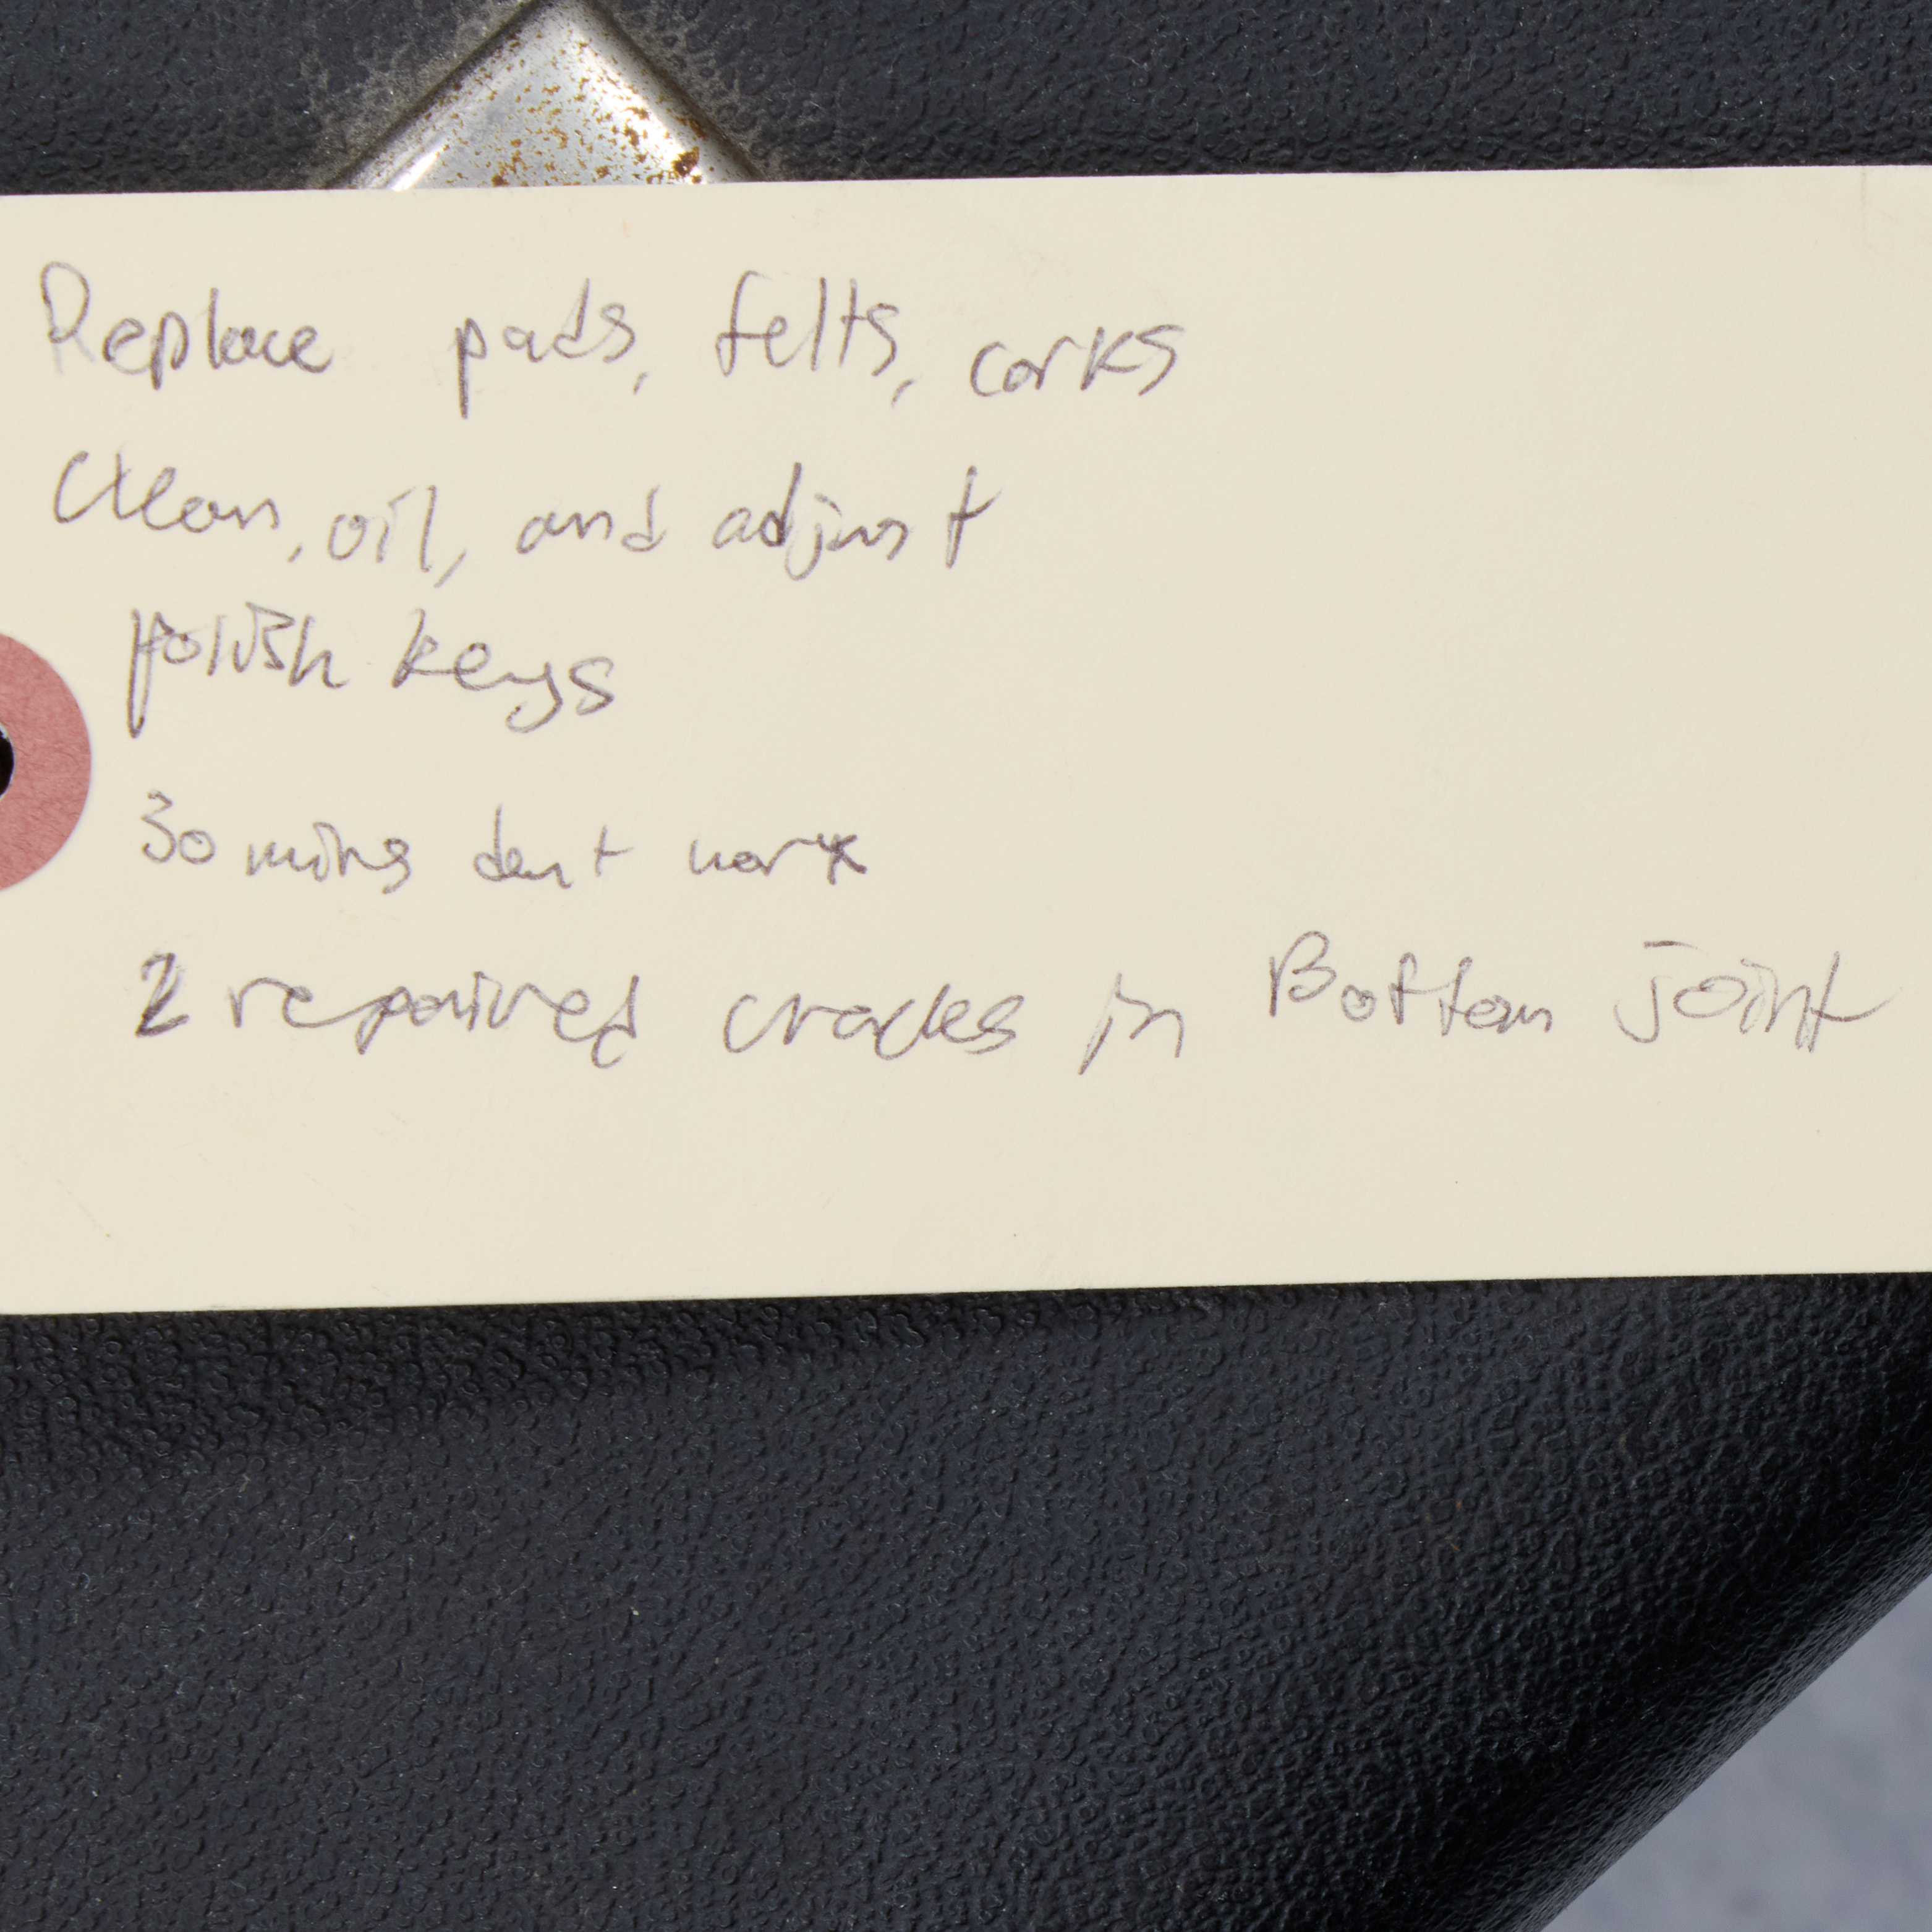 Replace pads, felts, corks
Clean, oil, and adjust
polish keys
30 mins dent work
2 repaired cracks in Bottom joint